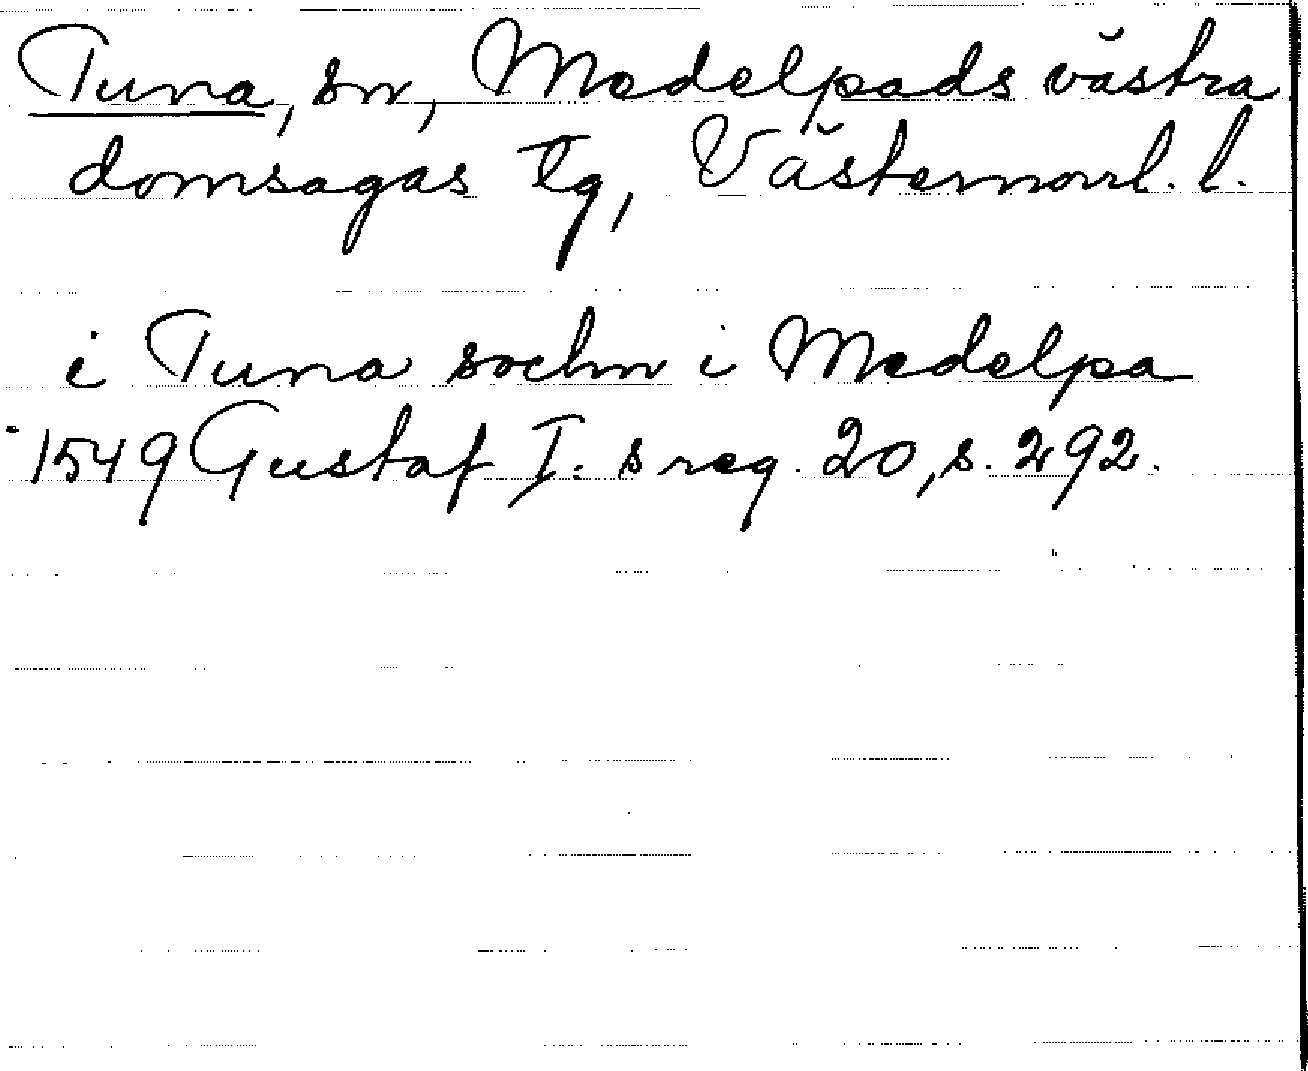 Tuna, sn, Medelpads västra
domsagas tg, Västernorrl. l.
i Tuna sochn i Medelpa
1549 Gustaf I:s reg. 20, s. 292.